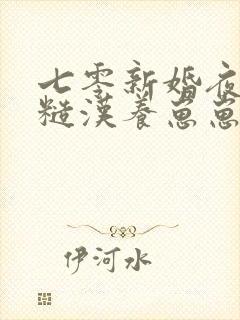 七零新婚夜
糙漢養崽崽
伊河水